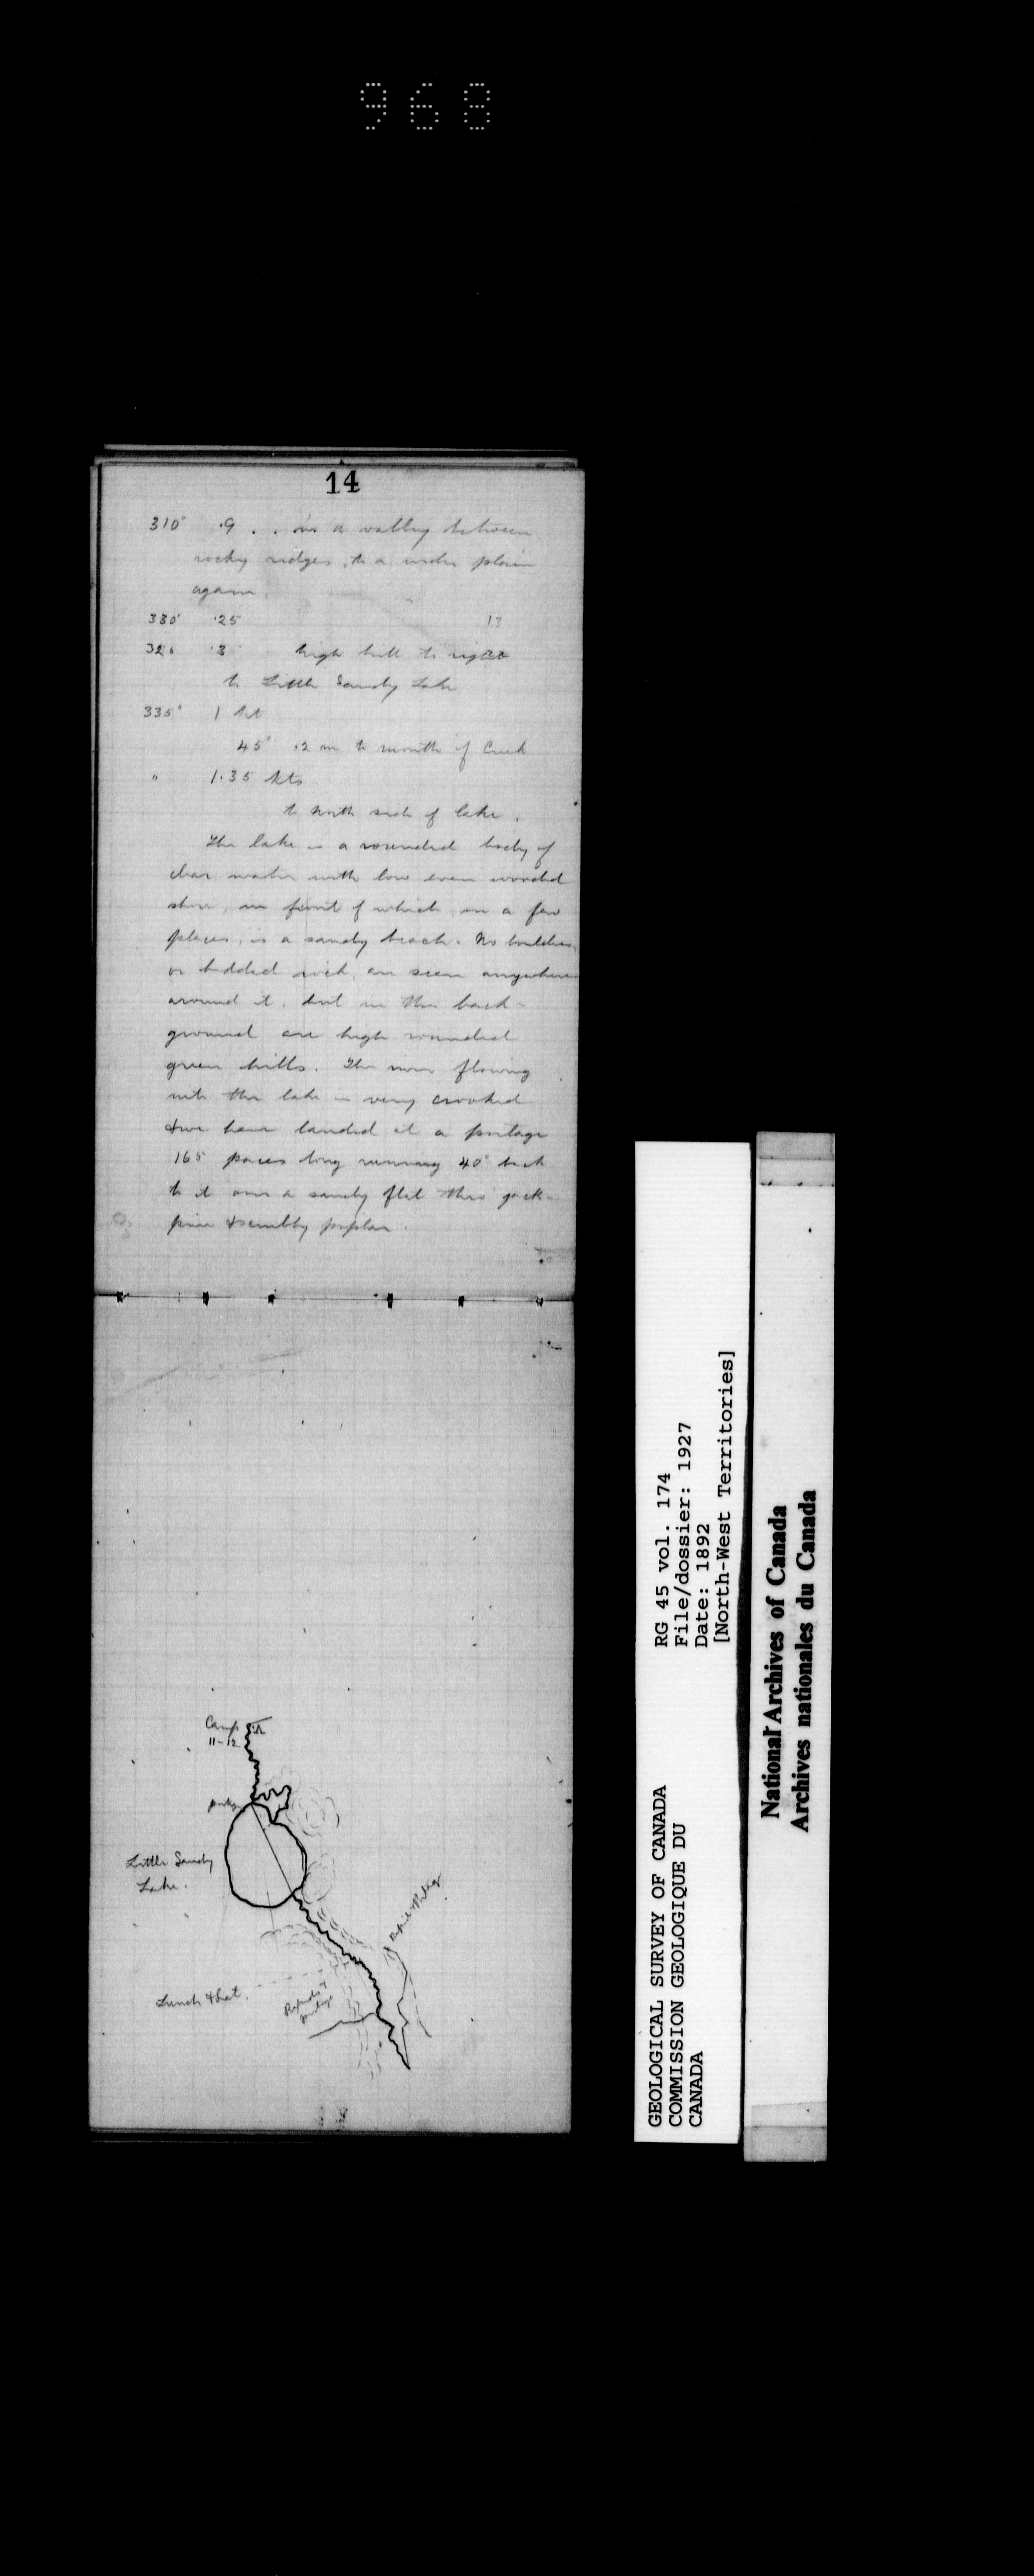 968
14
310° .9 . . in a valley between
rocky ridges, to a wide plain
again.
330° .25 13
320 .3 high hill to right
to Little Sandy Lake
335° 1 kt
45° .2 m to mouth of Creek
" 1.35 kts
to North side of lake.
The lake is a rounded body of
clear water with low even wooded
shore, in front of which, in a few
places, is a sandy beach. No boulders
or bedded rock are seen anywhere
around it, but in the back-
ground are high rounded
green hills. The river flowing
into the lake is very crooked
& we have landed at a portage
165 paces long running 40° back
to it over a sandy flat thro' jack-
pine & scrubby poplar.
Camp
11-12
portage
Little Sandy
Lake.
Rapid & Ptge
Lunch & Lat.
Rapids &
portage
GEOLOGICAL SURVEY OF CANADA
COMMISSION GEOLOGIQUE DU
CANADA
RG 45 vol. 174
File/dossier: 1927
Date: 1892
[North-West Territories]
National Archives of Canada
Archives nationales du Canada